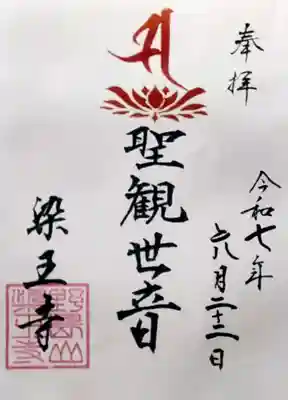 奉拝
令和七年
六月二十二日
聖観世音
染王寺